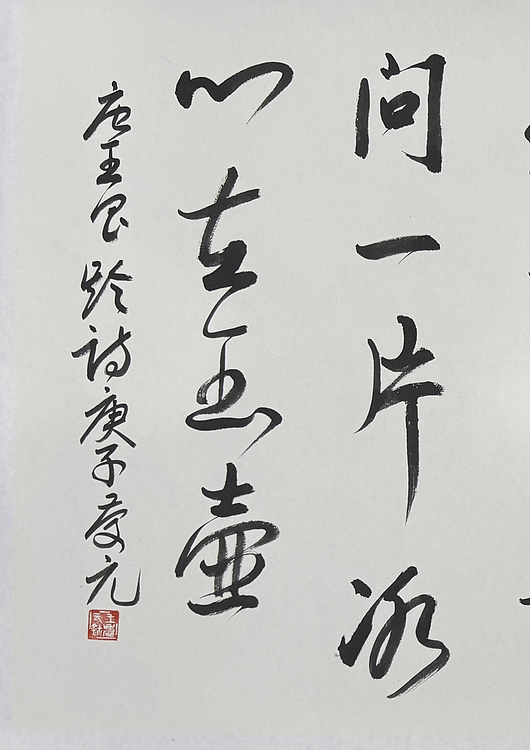 问一片冰
心在玉壶
唐王昌龄诗庚子元